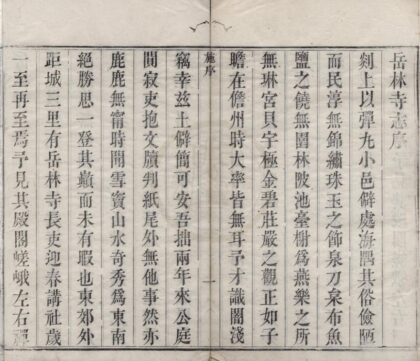 岳林寺志序
剡上以彈九小邑僻處海隅其俗儉陋
而民淳無錦繡珠玉之飾泉刀泉布魚
鹽之饒無園林陂池臺榭爲燕樂之所
無琳宮貝宇極金碧莊嚴之觀正如子
瞻在儋州時大率皆無耳予才識闇淺
施序
一
竊幸兹土僻簡可安吾拙兩年來公庭
閴寂吏抱文牘判紙尾外無他事然亦
鹿鹿無甯時聞雪竇山水奇秀爲東南
絕勝思一登其巔而未有暇也東郊外
距城三里有岳林寺長吏迎春講社歲
一至再至焉予見其殿閣嵯峨左右